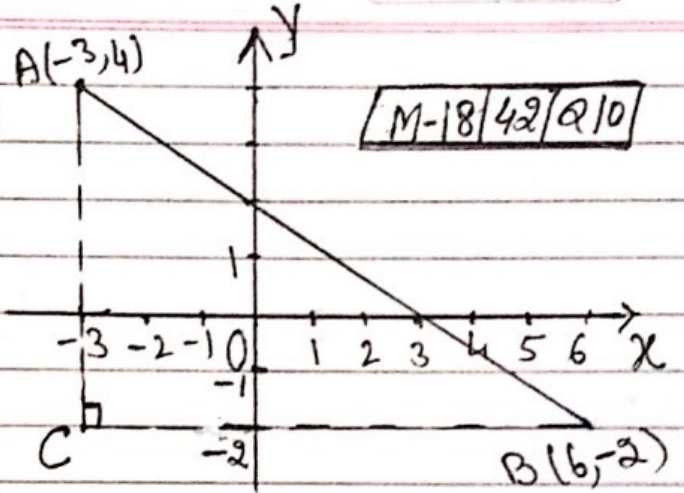 y
A(-3,4)
M-18 42 Q10
1
-3 -2 -1 0 1 2 3 4 5 6 x
-1
C -2 B(6,-2)